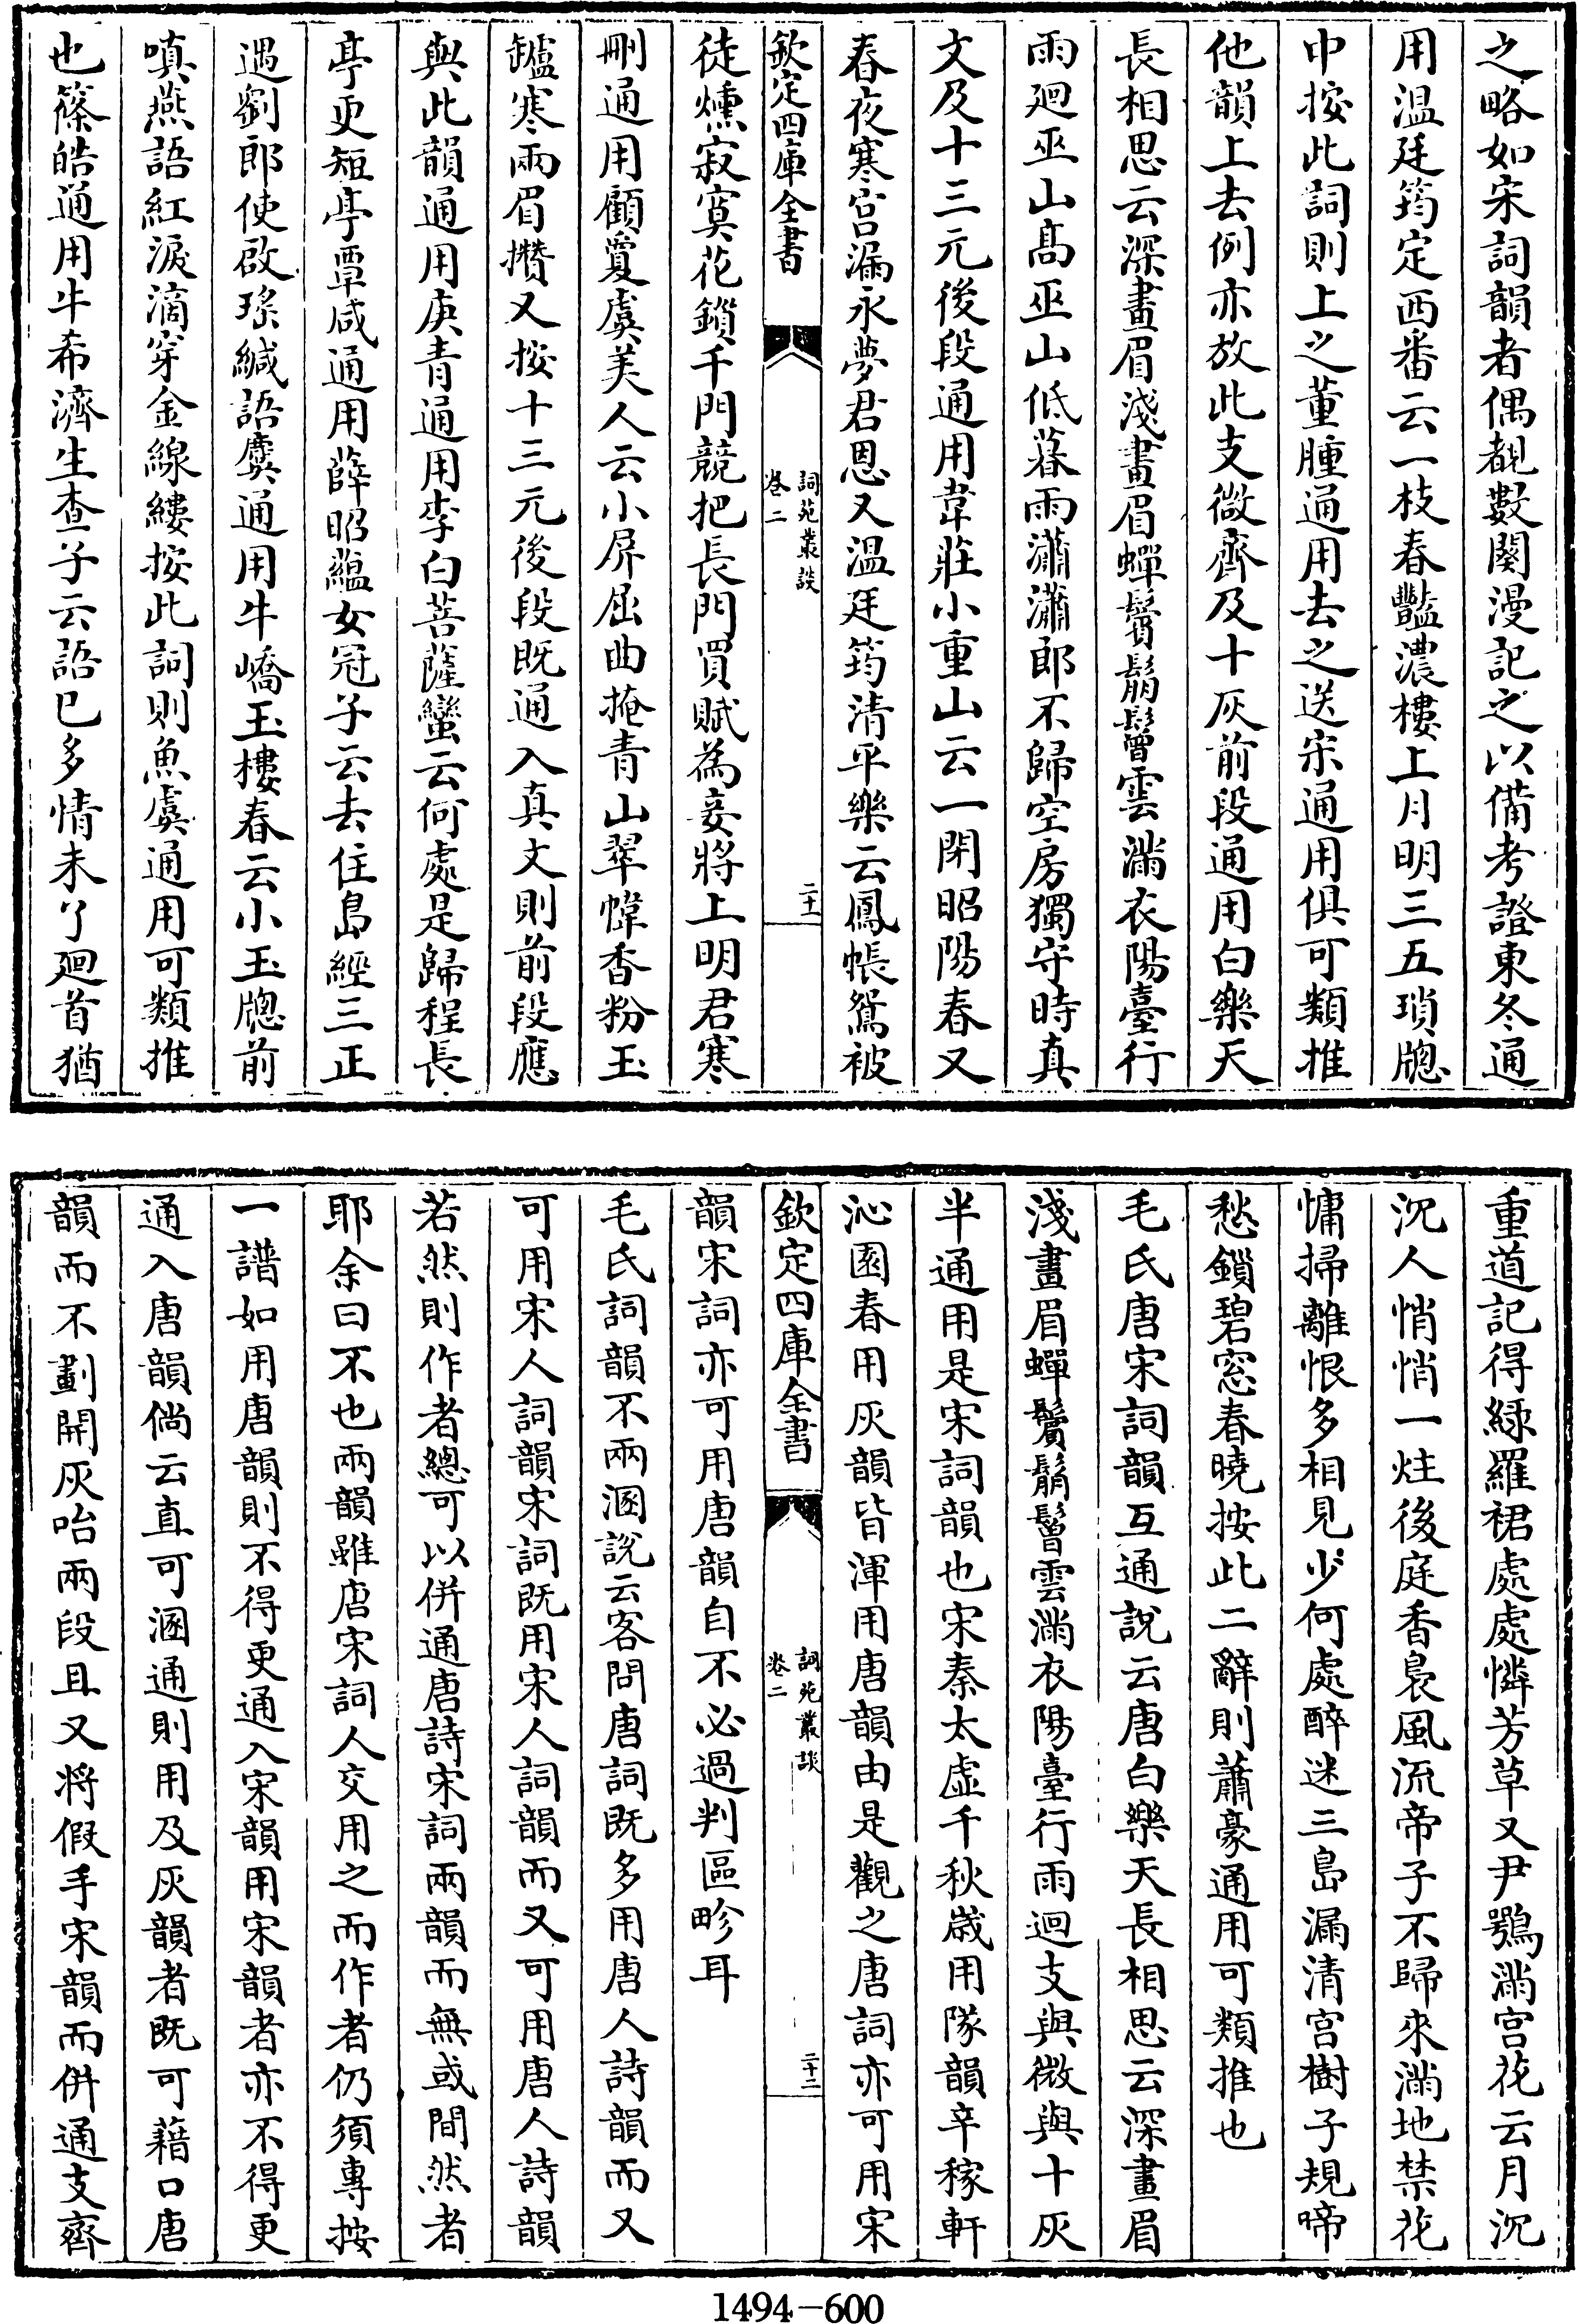 之略如宋詞韻者偶覩數闋漫記之以備考證東冬通
用温廷筠定西番云一枝春豔濃樓上月明三五瑣牕
中按此詞則上之董腫通用去之送宋通用俱可類推
他韻上去例亦放此支微齊及十灰前段通用白樂天
長相思云深畫眉淺畫眉蟬鬢鬅鬙雲滿衣陽臺行
雨廻巫山髙巫山低暮雨瀟瀟郎不歸空房獨守時真
文及十三元後段通用韋莊小重山云一閉昭陽春又
春夜寒宫漏永夢君恩又温廷筠清平樂云鳳帳鴛被
欽定四庫全書
詞苑叢談
卷二
二十一
徒燻寂寞花鎖千門競把長門買賦為妾將上明君寒
刪通用顧夐虞美人云小屏屈曲掩青山翠幃香粉玉
鑪寒兩眉攢又按十三元後段既通入真文則前段應
與此韻通用庚青通用李白菩薩蠻云何處是歸程長
亭更短亭覃咸通用薛昭藴女冠子云去住島經三正
遇劉郎使啟瑤緘語麌通用牛嶠玉樓春云小玉牕前
嗔燕語紅淚滴穿金線縷按此詞則魚虞通用可類推
也篠皓通用牛希濟生查子云語已多情未了廻首猶
重道記得緑羅裙處處憐芳草又尹鶚滿宫花云月沉
沉人悄悄一炷後庭香裊風流帝子不歸來滿地禁花
慵掃離恨多相見少何處醉迷三島漏清宫樹子規啼
愁鎖碧窓春曉按此二辭則蕭豪通用可類推也
毛氏唐宋詞韻互通說云唐白樂天長相思云深畫眉
淺畫眉蟬鬢鬅鬙雲滿衣陽臺行雨迴支與微與十灰
半通用是宋詞韻也宋秦太虚千秋歲用隊韻辛稼軒
沁園春用灰韻皆渾用唐韻由是觀之唐詞亦可用宋
欽定四庫全書
詞苑叢談
卷二
二十二
韻宋詞亦可用唐韻自不必過判區畛耳
毛氏詞韻不兩溷說云客問唐詞既多用唐人詩韻而又
可用宋人詞韻宋詞既用宋人詞韻而又可用唐人詩韻
若然則作者總可以併通唐詩宋詞兩韻而無或間然者
耶余曰不也兩韻雖唐宋詞人交用之而作者仍須專按
一譜如用唐韻則不得更通入宋韻用宋韻者亦不得更
通入唐韻倘云直可溷通則用及灰韻者既可藉口唐
韻而不劃開灰咍兩段且又將假手宋韻而併通支齊
1494—600